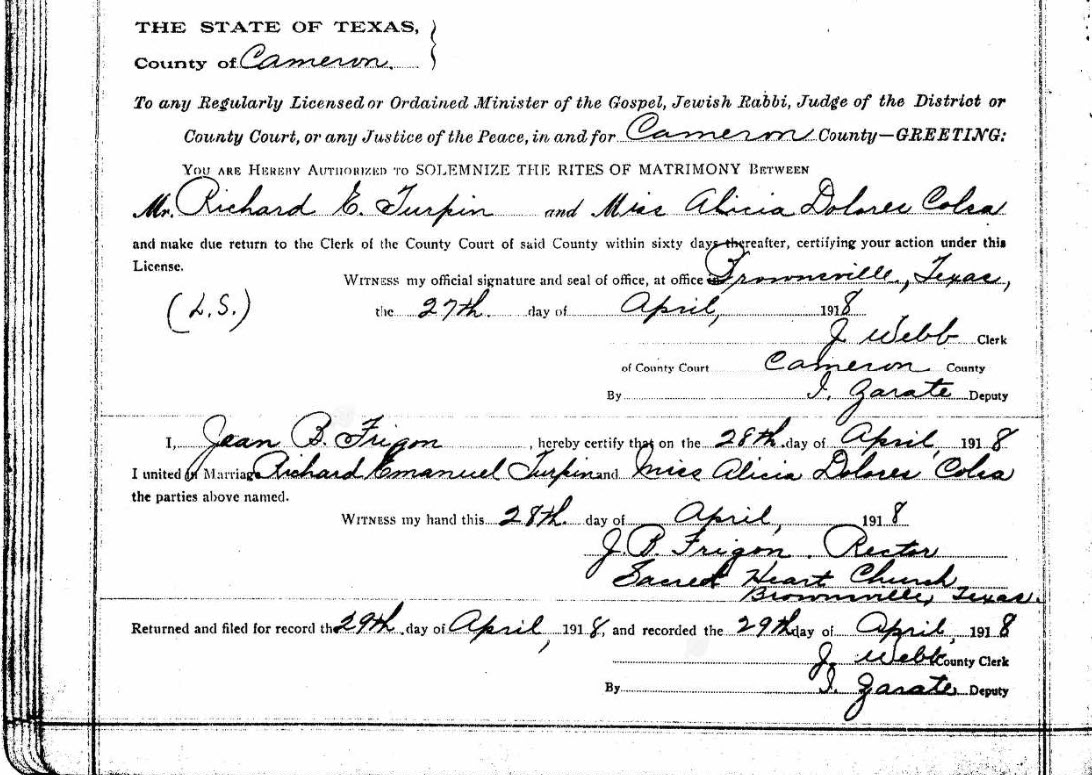 THE STATE OF TEXAS,
County of Cameron.
To any Regularly Licensed or Ordained Minister of the Gospel, Jewish Rabbi, Judge of the District or
County Court, or any Justice of the Peace, in and for Cameron County—GREETING:
YOU ARE HEREBY AUTHORIZED TO SOLEMNIZE THE RITES OF MATRIMONY BETWEEN
Mr. Richard E. Turpin and Miss Alicia Dolores Colsa
and make due return to the Clerk of the County Court of said County within sixty days thereafter, certifying your action under this
License.
WITNESS my official signature and seal of office, at office Brownsville, Texas,
(L.S.) the 27th. day of April, 1918
J. Webb Clerk
of County Court Cameron County
By I. Zarate Deputy
I, Jean B. Frigon, hereby certify that on the 28th. day of April, 1918
I united in Marriage Richard Emanuel Turpin and Miss Alicia Dolores Colsa
the parties above named.
WITNESS my hand this 28th. day of April, 1918
J. B. Frigon. Rector
Sacred Heart Church
Brownsville, Texas.
Returned and filed for record the 29th. day of April, 1918, and recorded the 29th day of April, 1918
J. Webb County Clerk
By I. Zarate Deputy